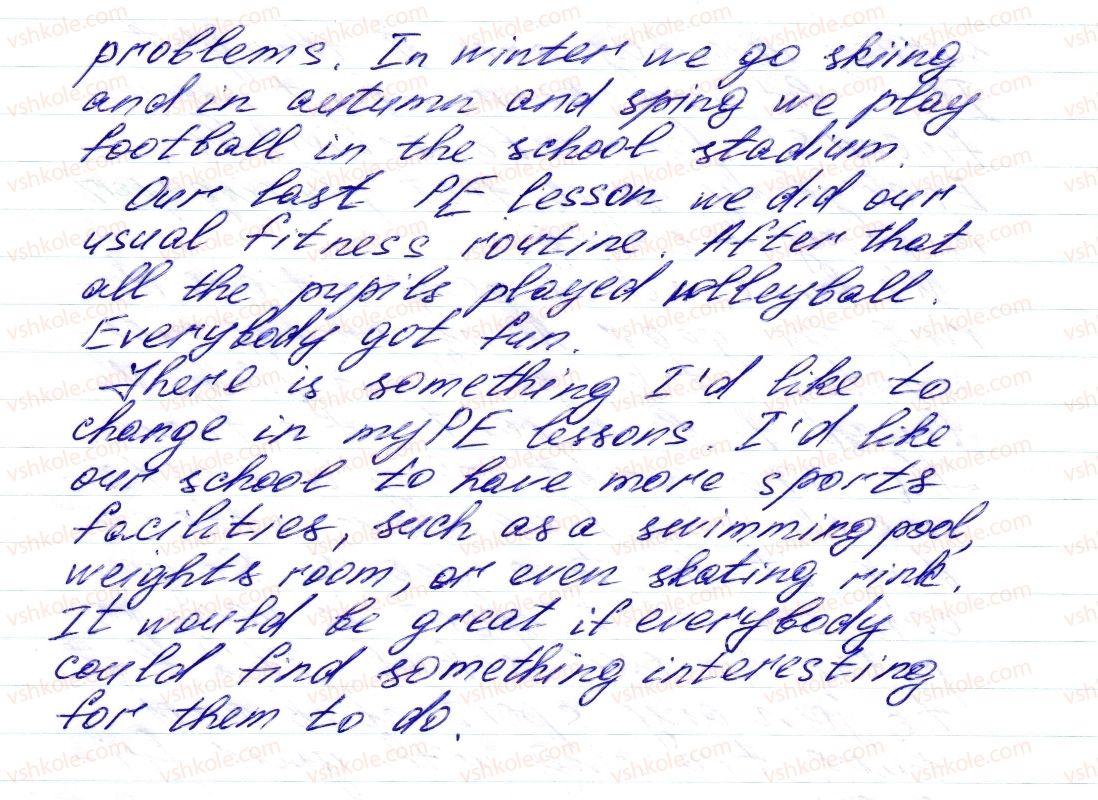 problems. In winter we go skiing
and in autumn and sping we play
football in the school stadium.
Our last PE lesson we did our
usual fitness routine. After that
all the pupils played volleyball.
Everybody got fun.
There is something I'd like to
change in my PE lessons. I'd like
our school to have more sports
facilities, such as a swimming pool,
weights room, or even skating rink.
It would be great if everybody
could find something interesting
for them to do.